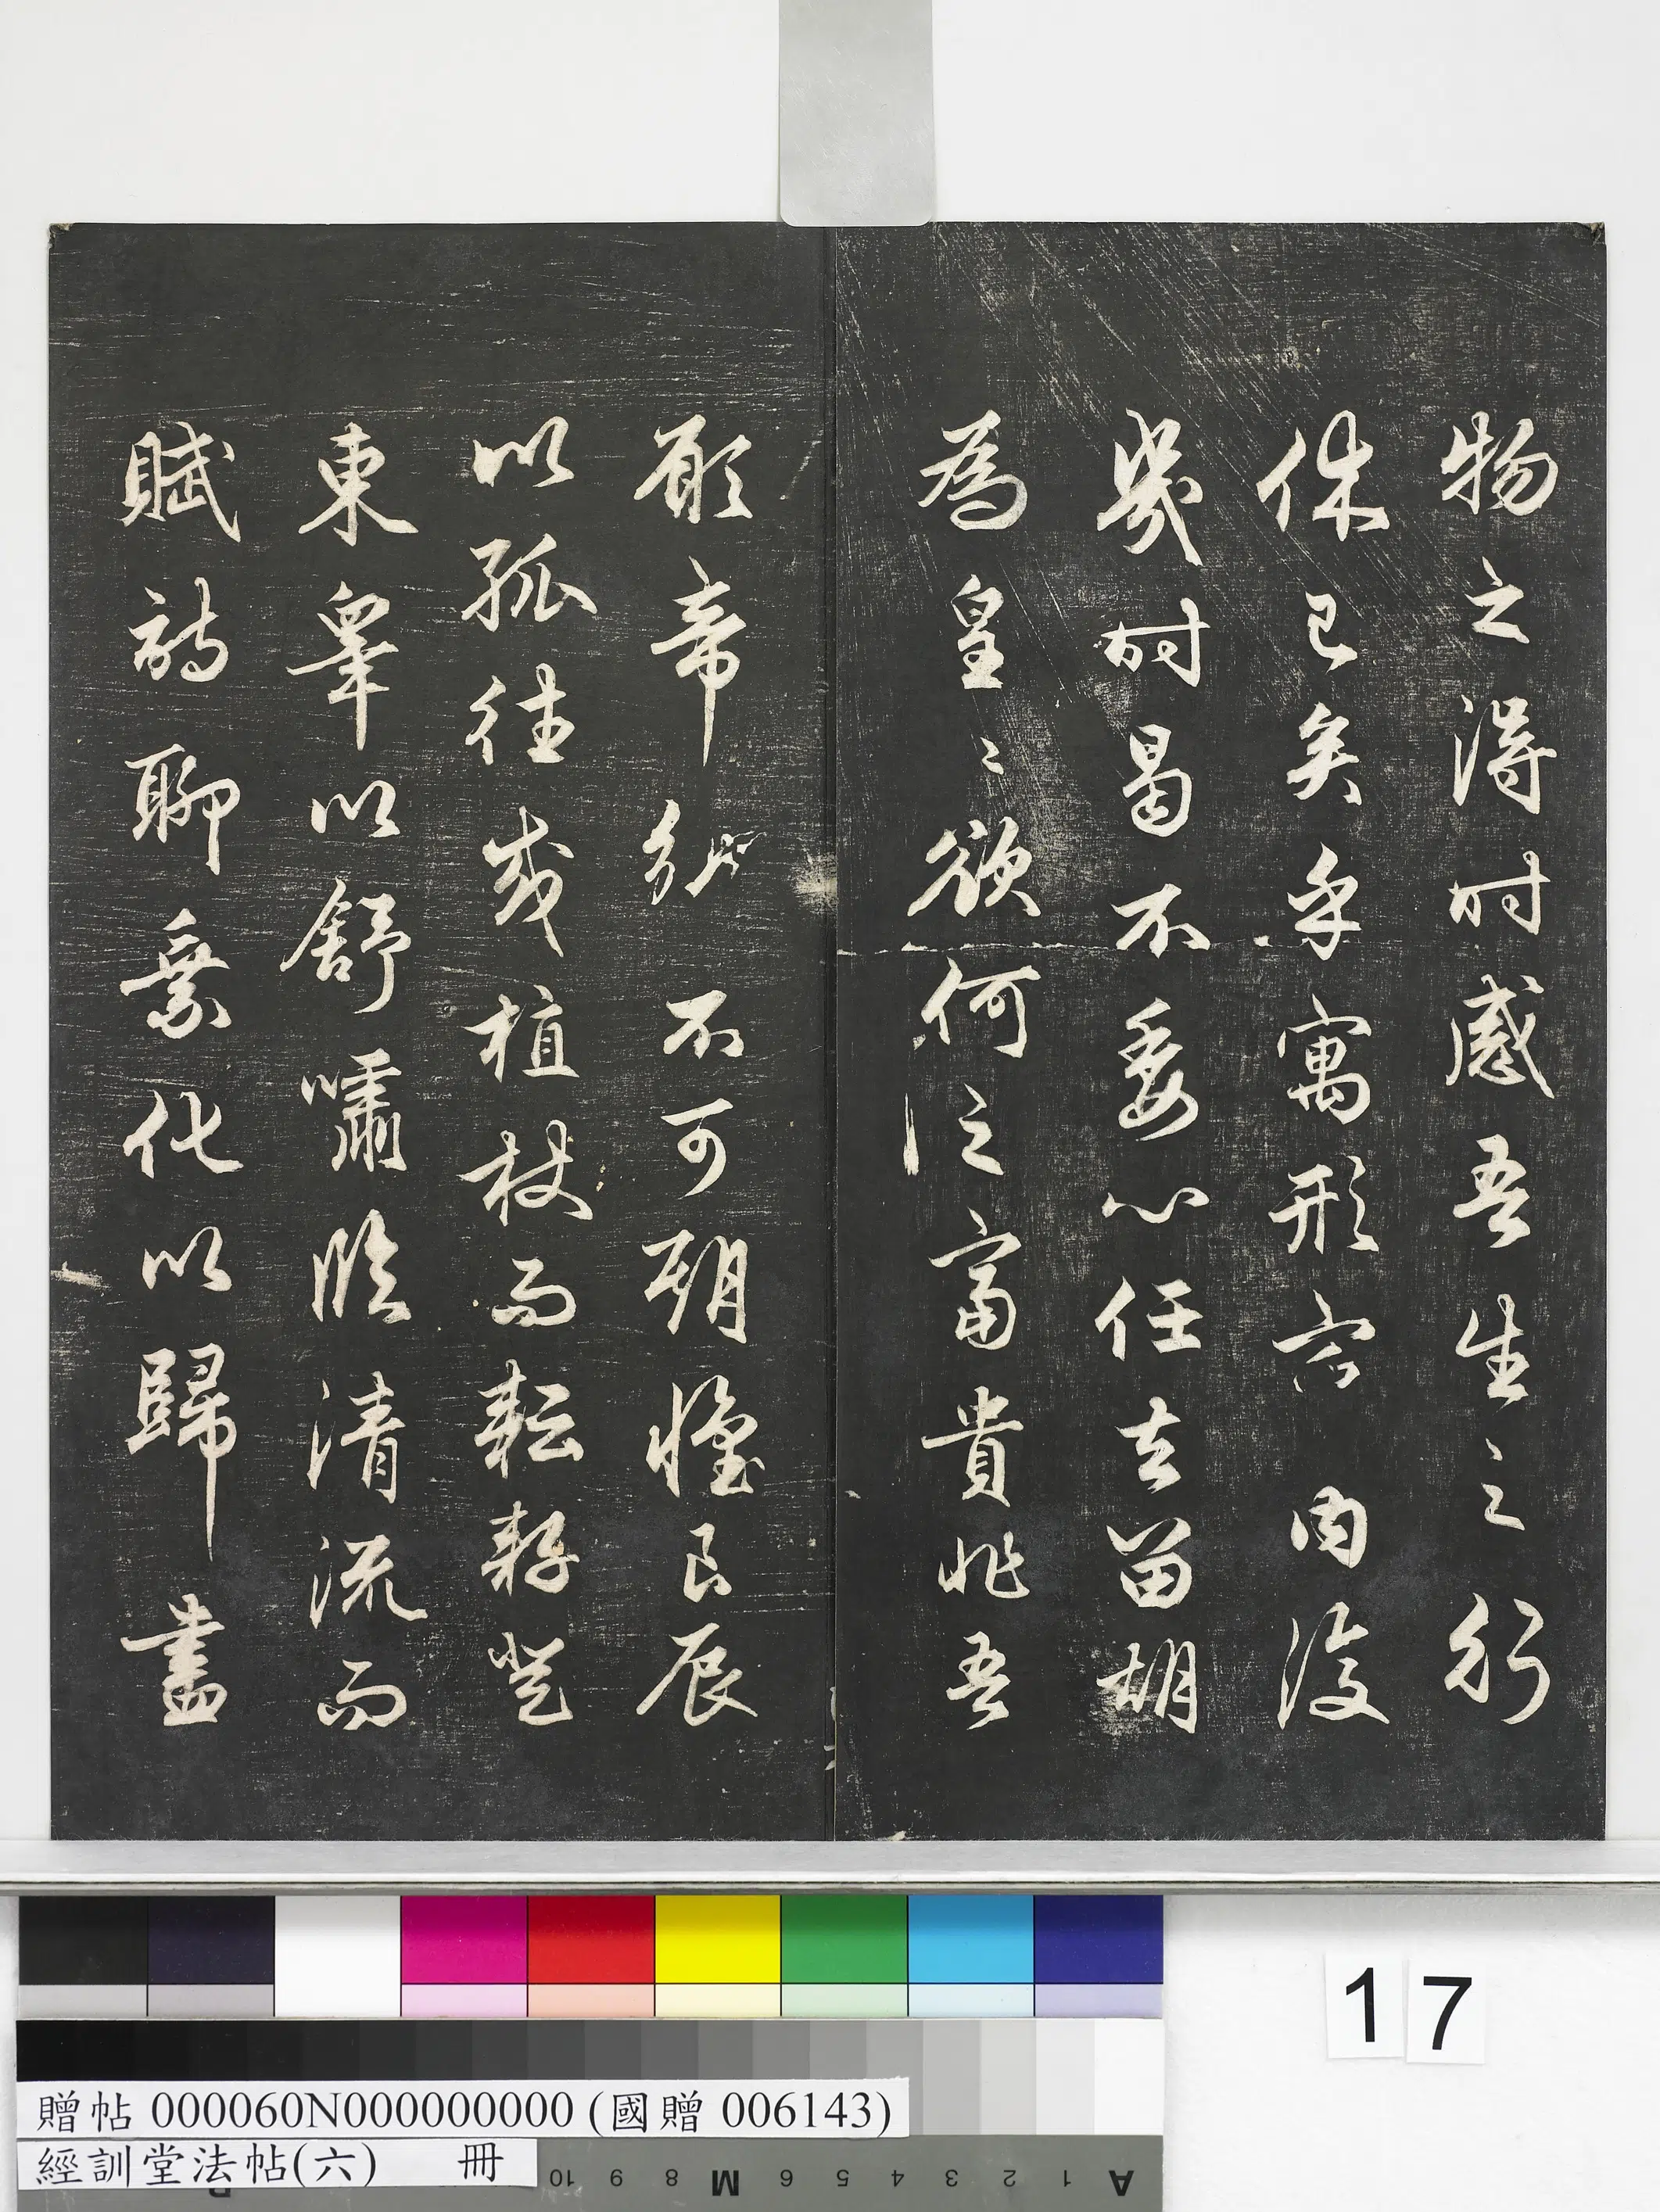 物之得時感吾生之行
休已矣乎寓形宇內復
幾時曷不委心任去留胡
為皇〻欲何之富貴非吾
願帝鄉不可期懷良辰
以孤往或植杖而耘耔登
東皋以舒嘯臨清流而
賦詩聊乘化以歸盡
17
贈帖 000060N000000000 (國贈 006143)
經訓堂法帖(六) 冊
10 9 8 M 6 5 4 3 2 1 A